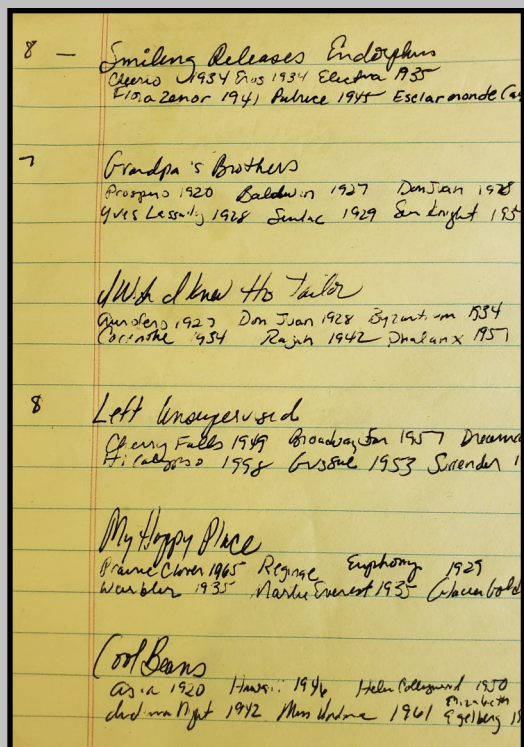 8 — Smiling Releases Endorphins
Cheerio 1934 Eros 1934 Electra 1935
Flora Zenor 1941 Patrice 1945 Esclarmonde
7 Grandpa's Brothers
Prospero 1920 Baldwin 1927 Don Juan 1928
Yves Lassailly 1928 Senlac 1929 Sun Knight 195
I Wish I Knew His Tailor
1927 Don Juan 1928 Byzantium 1934
Corinthe 1934 Rajah 1942 Phalanx 1951
8 Left Unsupervised
Cherry Falls 1949 Broadway Star 1957
Hi Calypso 1998 Gussie 1953 Surrender 1
My Happy Place
Prairie Clover 1965 Reginae Euphony 1929
Warbler 1935 Martie Everest 1935
Cool Beans
Asia 1920 Hawaii 1946 Helen Collingwood 1950
Indiana Night 1942 Miss Indiana 1961 Elizabeth
Egelberg